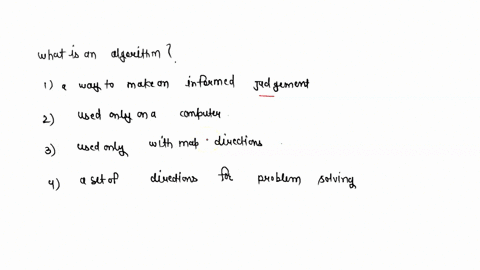 what is an algorithm?
1) a way to make an informed judgement
2) used only on a computer
3) used only with map directions
4) a set of directions for problem solving